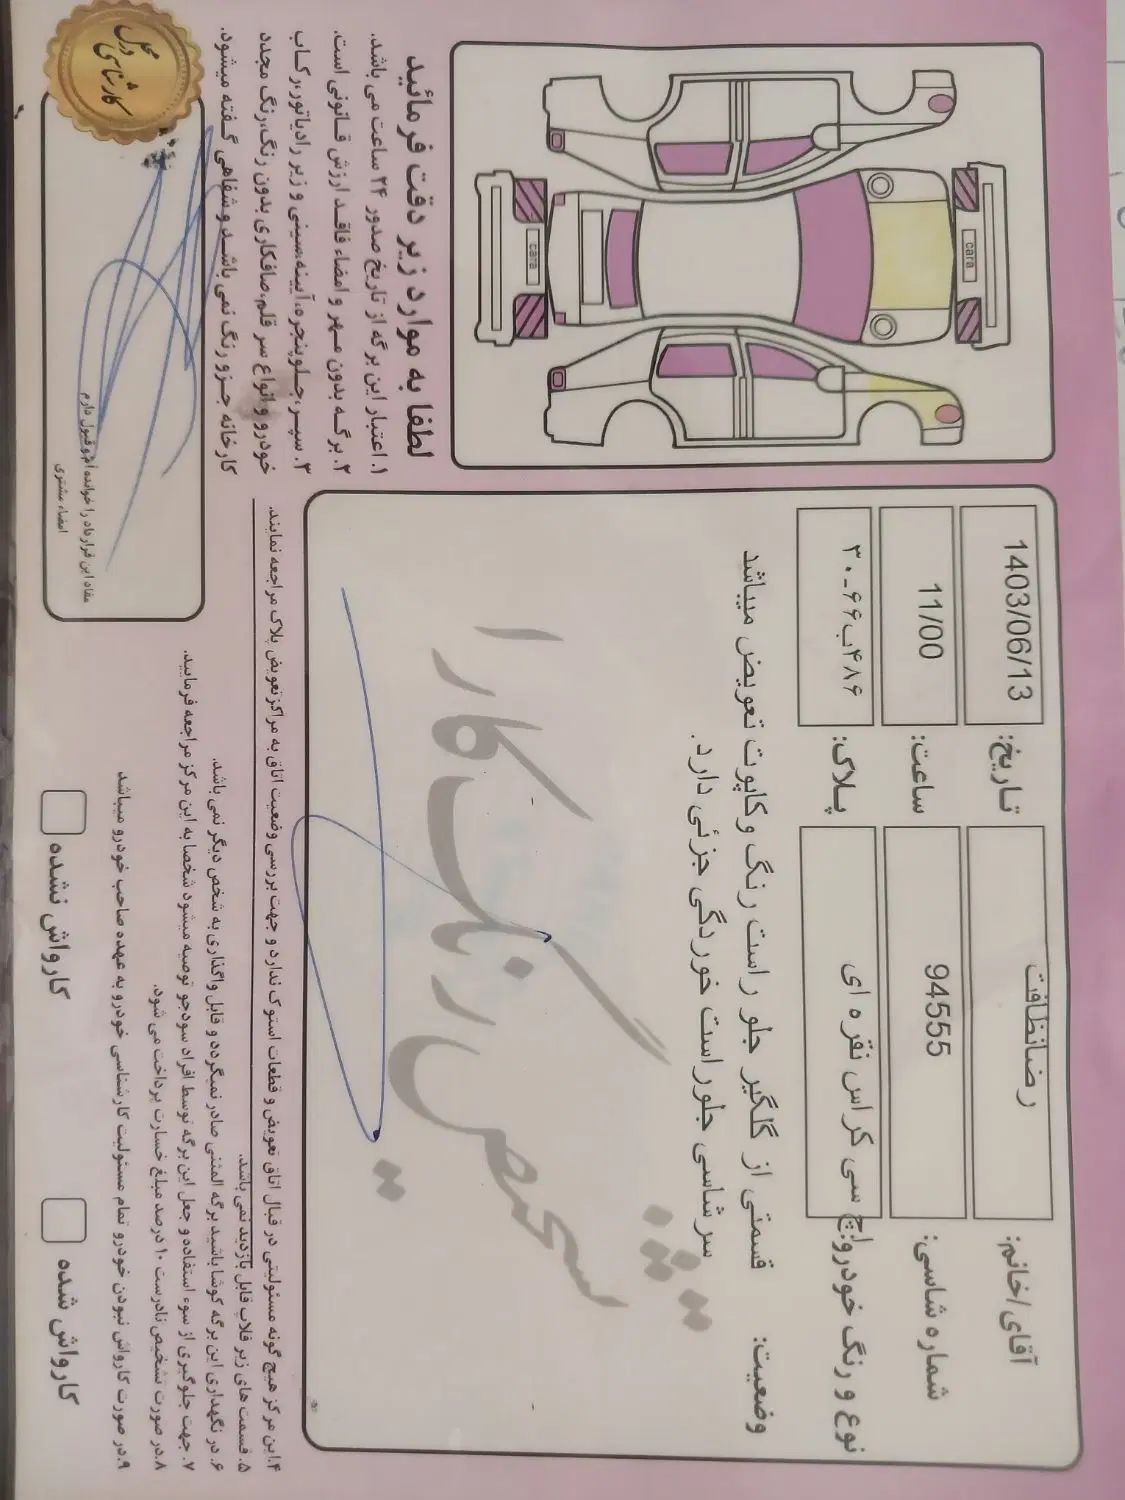 آقای/خانم: رضانظافت
تاریخ: 1403/06/13
شماره شاسی: 94555
ساعت: 11/00
نوع و رنگ خودرو: اچ سی کراس نقره ای
پلاک: ۴۸۶ب۶۶-۳۰
وضعیت: قسمتی از گلگیر جلو راست رنگ وکاپوت تعویض میباشد
سرشاسی جلوراست خوردگی جزئی دارد.
تشخیص رنگ کارا
cara
cara
لطفا به موارد زیر دقت فرمائید
۱. اعتبار این برگه از تاریخ صدور ۲۴ ساعت می باشد.
۲. برگه بدون مهر و امضاء فاقد ارزش قانونی است.
۳. سپر،جلوپنجره،آیینه،سینی و زیر رادیاتور،رکاب
خودرو و انواع سر قلم،صافکاری بدون رنگ،رنگ مجدد
کارخانه جزو رنگ نمی باشد و شفاهی گفته میشود.
۴.این مرکز هیچ گونه مسئولیتی در قبال اتاق تعویض و قطعات استوک ندارد و جهت بررسی وضعیت اتاق به مراکز تعویض پلاک مراجعه نمایند.
۵. قسمت های زیر قلاب قابل بازدید نمی باشد.
۶. در نگهداری این برگه کوشا باشید برگه المثنی صادر نمیگردد و قابل واگذاری به شخص دیگر نمی باشد.
۷. جهت جلوگیری از سوء استفاده و جعل این برگه توسط افراد سودجو توصیه میشود شخصا به این مرکز مراجعه فرمایید.
۸.در صورت تشخیص نادرست ۱۰ درصد مبلغ خسارت پرداخت می شود.
۹.در صورت کارواش نبودن خودرو تمام مسئولیت کارشناسی خودرو به عهده صاحب خودرو میباشد
کارواش شده
کارواش نشده
مفاد این قرارداد را خوانده ام و قبول دارم
امضاء مشتری
محل
کارشناسی